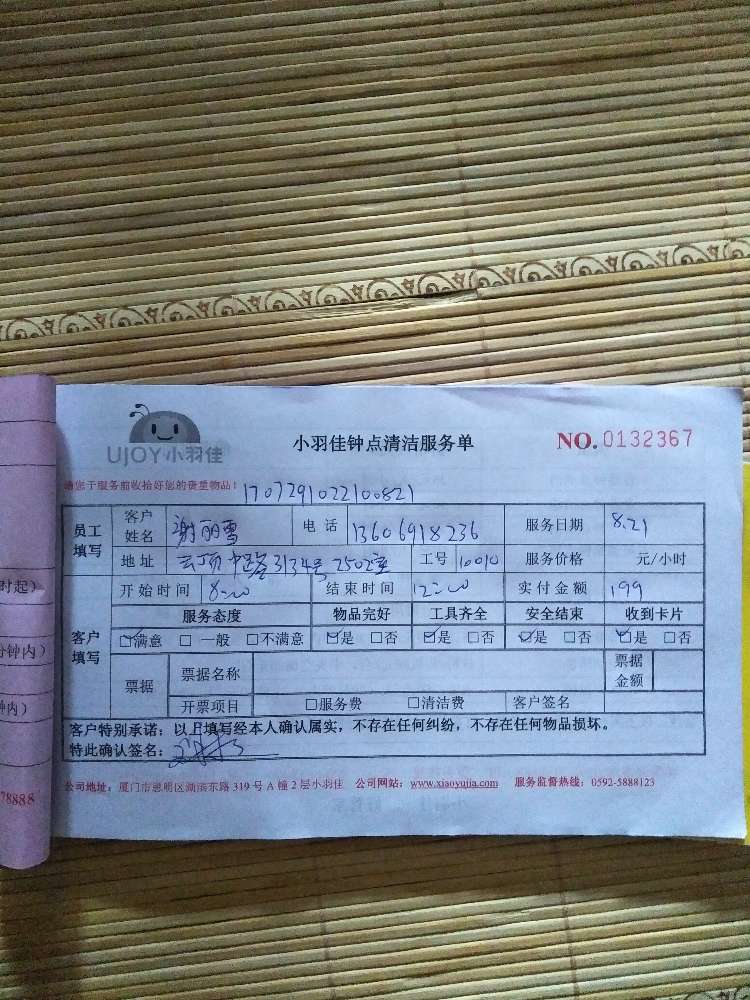 UJOY小羽佳
小羽佳钟点清洁服务单
NO.0132367
请您于服务前收拾好您的贵重物品！
1707291022100821
员工填写 客户姓名 谢丽雪 电话 13606918236 服务日期 8.21
地址 云顶中路3134号2502室 工号 10010 服务价格 元/小时
客户填写 开始时间 8:00 结束时间 12:00 实付金额 199
服务态度 物品完好 工具齐全 安全结束 收到卡片
☑满意 □一般 □不满意 ☑是 □否 ☑是 □否 ☑是 □否 ☑是 □否
票据 票据名称 票据金额
开票项目 □服务费 □清洁费 客户签名
客户特别承诺：以上填写经本人确认属实，不存在任何纠纷，不存在任何物品损坏。
特此确认签名：
公司地址：厦门市思明区湖滨东路319号A幢2层小羽佳 公司网站：www.xiaoyujia.com 服务监督热线：0592-5888123
时起）
分钟内）
钟内）
78888